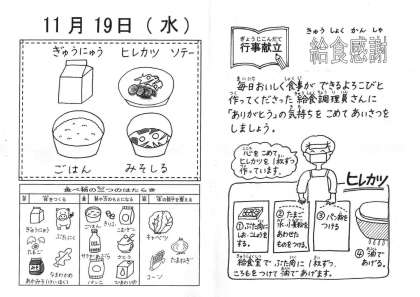 11月19日（水）
ぎゅうにゅう　ヒレカツ　ソテー
ごはん　みそしる
食べ物の三つのはたらき
ぎゅうにゅう
ぶたにく
たまご
みそ
なまわかめ
こむぎこ
ごはん
さとう
パンこ
キャベツ
たまねぎ
コーン
ぎょうじこんだて
行事献立
きゅうしょくかんしゃ
給食感謝
毎日おいしく食事ができるよろこびと
作ってくださった給食調理員さんに
「ありがとう」の気持ちをこめてあいさつを
しましょう。
心をこめて、
ヒレカツを1枚ずつ
作っています。
ヒレカツ
①ぶた肉に
しお・こしょうを
する。
②たまご
水・小麦粉を
あわせた
ものをつける。
③パン粉を
つける
④油で
あげる。
給食室で、ぶた肉に1枚ずつ、
ころもをつけて油であげます。